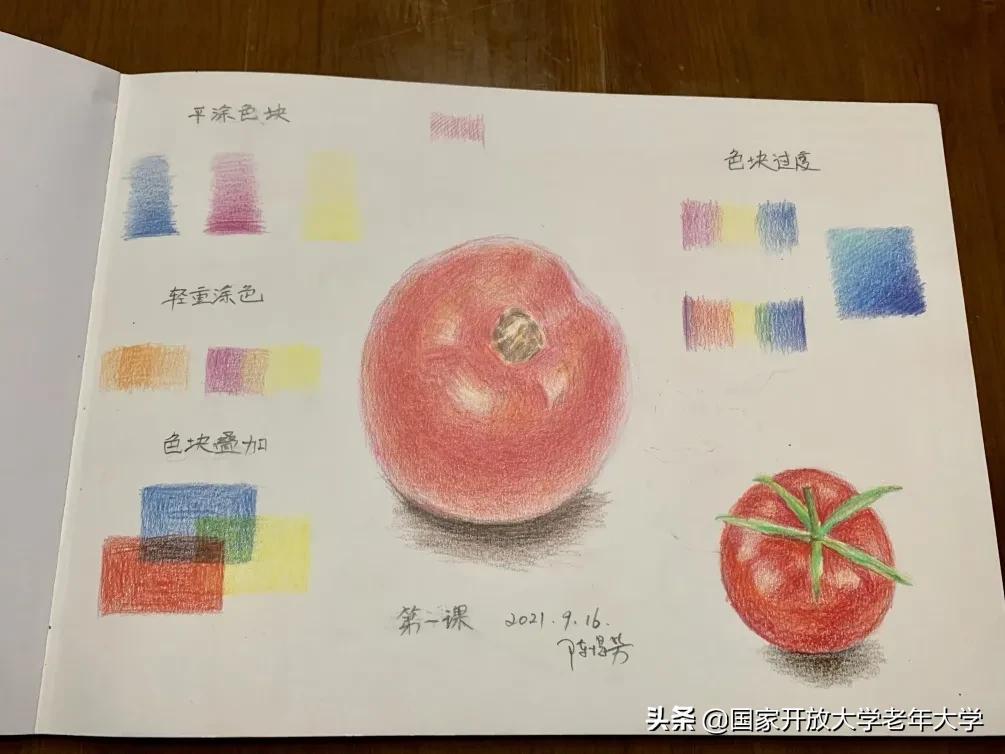 平涂色块
色块过度
轻重涂色
色块叠加
第一课 2021.9.16.
头条 @国家开放大学老年大学